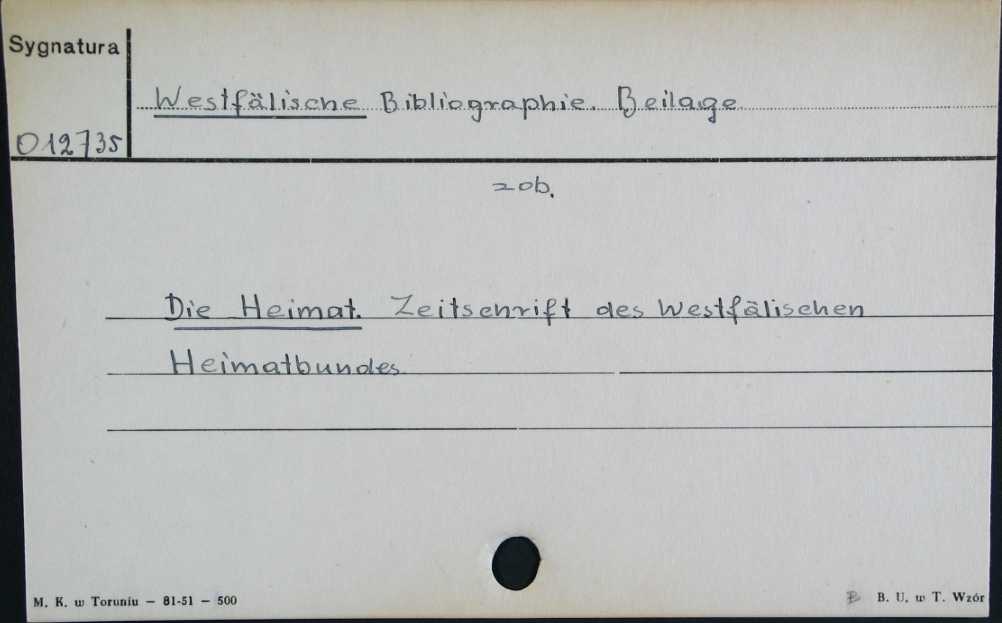 Sygnatura
Westfälische Bibliographie. Beilage
012735
zob.
Die Heimat. Zeitschrift des Westfälischen
Heimatbundes
M. K. w Toruniu — 81-51 — 500
B. U. w T. Wzór